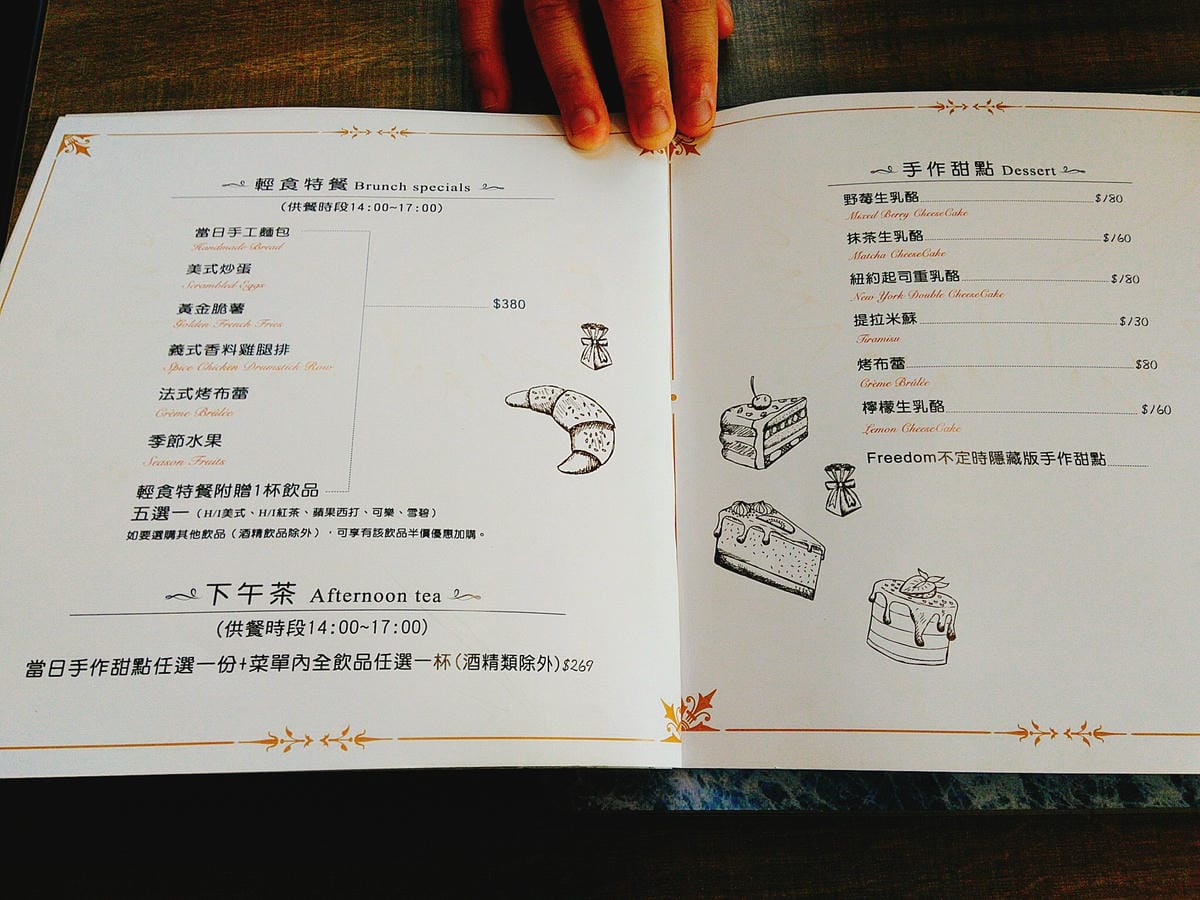 輕食特餐 Brunch specials
(供餐時段14:00~17:00)
當日手工麵包
Handmade Bread
美式炒蛋
Scrambled Eggs
黃金脆薯
Golden French Fries
$380
義式香料雞腿排
Spice Chicken Drumstick Row
法式烤布蕾
Crème Brûlée
季節水果
Season Fruits
輕食特餐附贈1杯飲品
五選一（H/I美式、H/I紅茶、蘋果西打、可樂、雪碧）
如要選購其他飲品（酒精飲品除外），可享有該飲品半價優惠加購。
下午茶 Afternoon tea
(供餐時段14:00~17:00)
當日手作甜點任選一份+菜單內全飲品任選一杯(酒精類除外)$269
手作甜點 Dessert
野莓生乳酪 $180
Mixed Berry CheeseCake
抹茶生乳酪 $160
Matcha CheeseCake
紐約起司重乳酪 $180
New York Double CheeseCake
提拉米蘇 $130
Tiramisu
烤布蕾 $80
Crème Brûlée
檸檬生乳酪 $160
Lemon CheeseCake
Freedom不定時隱藏版手作甜點